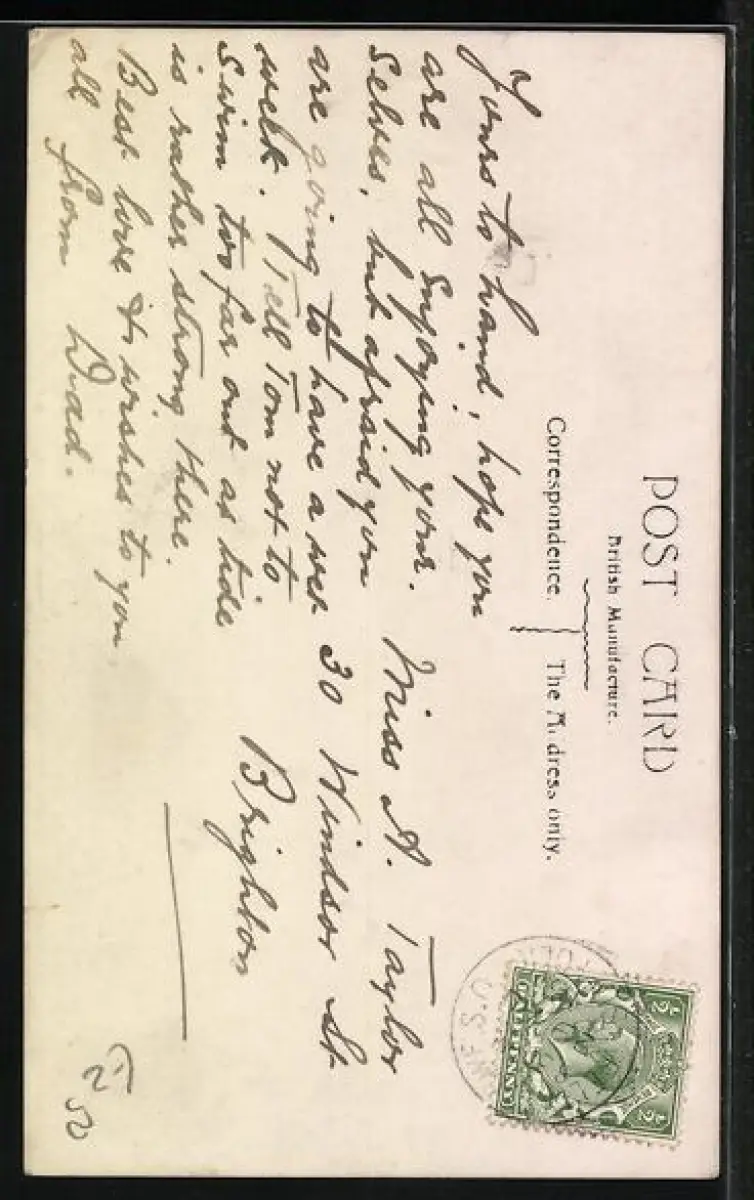 POST CARD
British Manufacture.
Correspondence.
The Address only.
Yours to hand, hope you
are all enjoying your
selves, but afraid you
are going to have a wet
week. Tell Tom not to
swim too far out as tide
is rather strong there.
Best love & wishes to you
all from Dad.
Miss A. Taylor
30 Windsor St
Brighton
½ ½
HALFPENNY